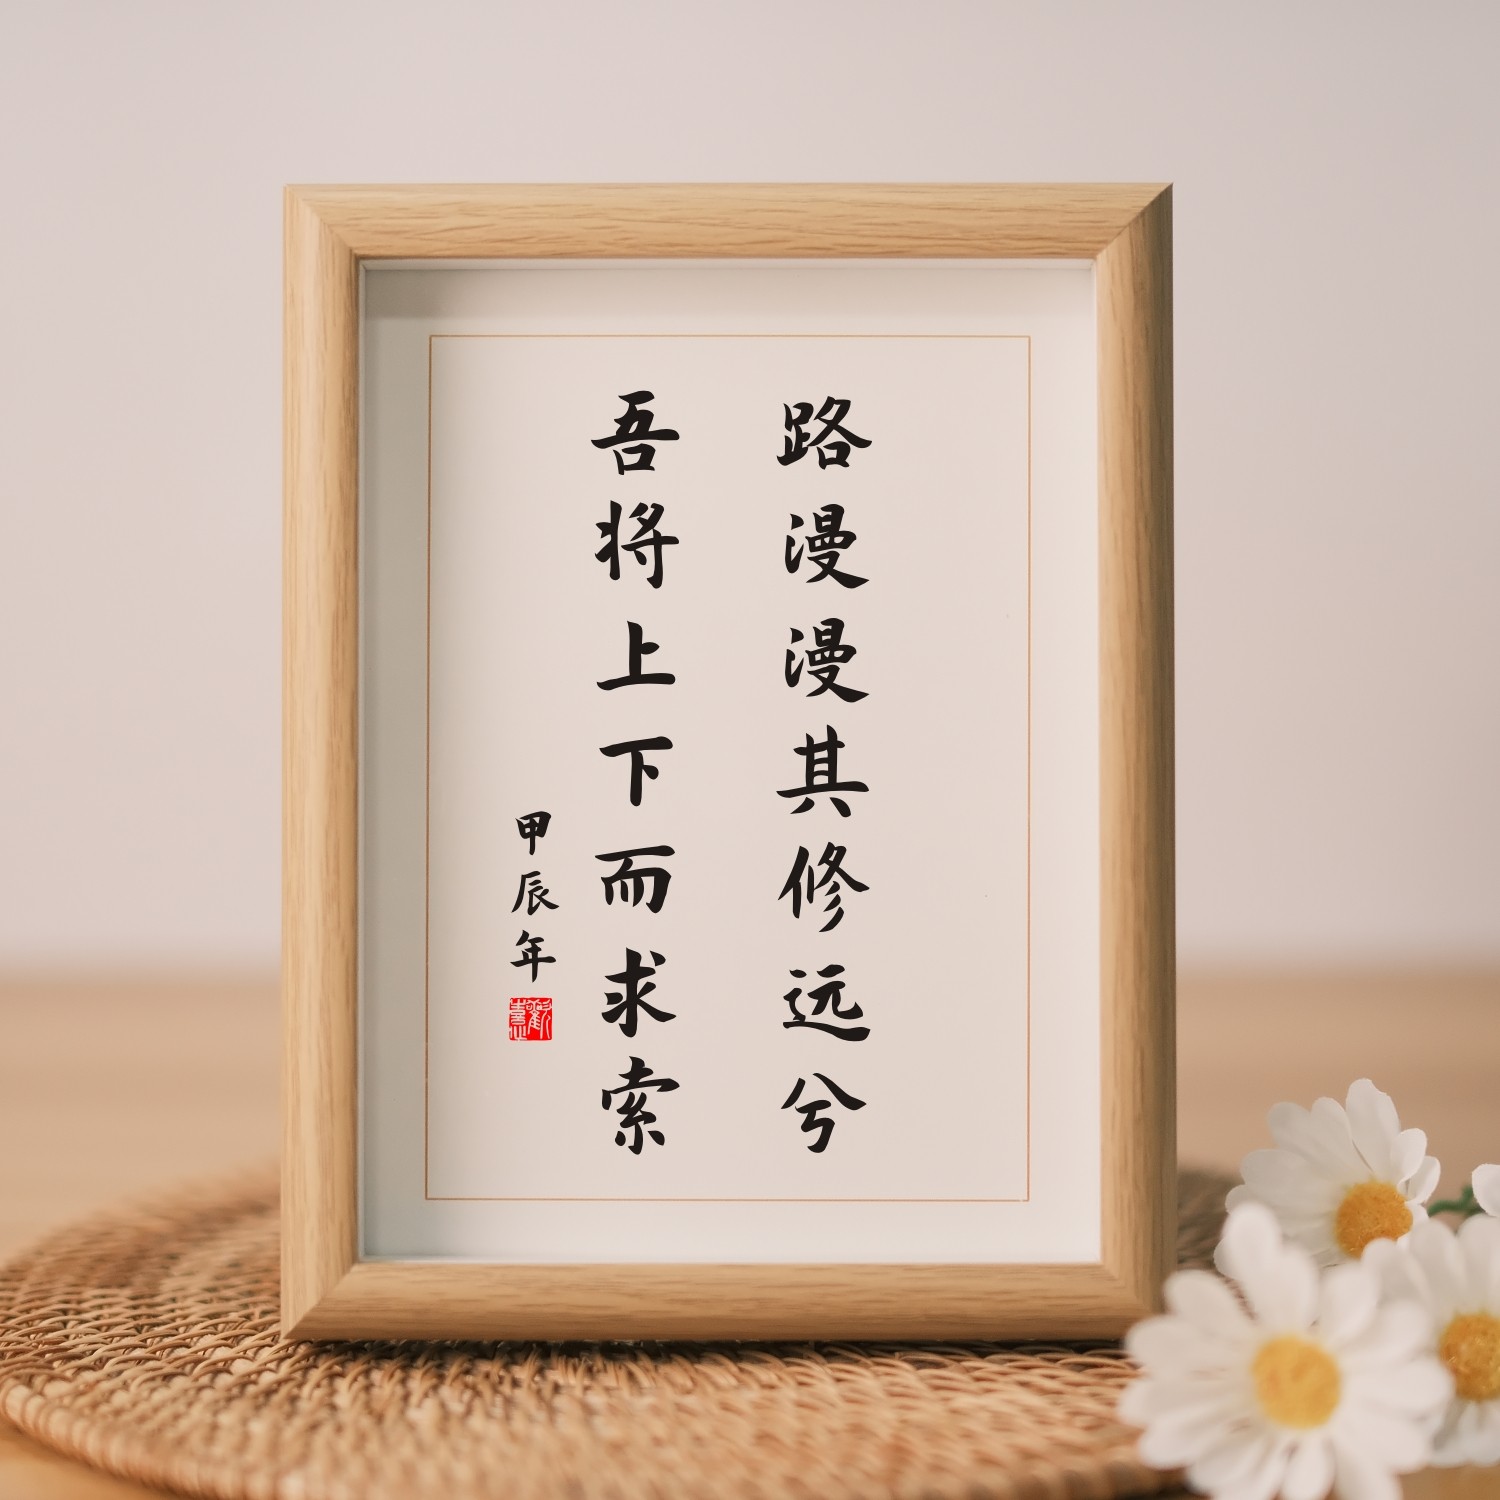 路漫漫其修远兮
吾将上下而求索
甲辰年